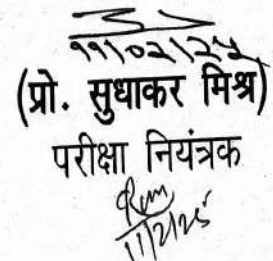 ११/०२/२५
(प्रो. सुधाकर मिश्र)
परीक्षा नियंत्रक
11/2/25